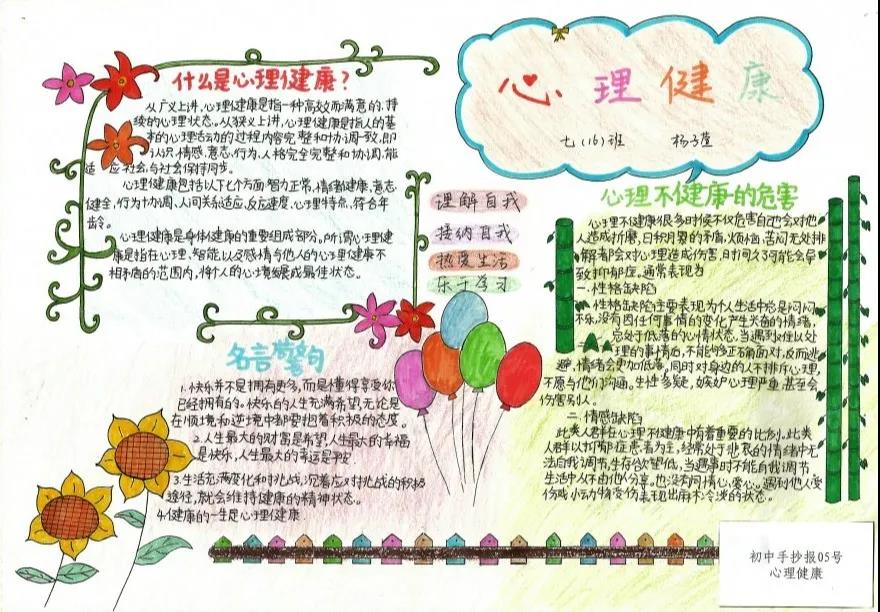 心理健康
七(16)班 杨子萱
什么是心理健康?
从广义上讲,心理健康是指一种高效而满意的,持
续的心理状态。从狭义上讲,心理健康是指人的基
本的心理活动的过程内容完整和协调一致,即
认识,情感,意志,行为,人格完全完整和协调,能
适应社会,与社会保持同步。
心理健康包括以下七个方面:智力正常,情绪健康,意志
健全,行为协调、人间关系适应,反应速度、心理特点,符合年
龄。
心理健康是身体健康的重要组成部分。所谓心理健
康是指在心理、智能,以及感情与他人的心理健康不
相矛盾的范围内,将个人的心境发展成最佳状态。
理解自我
接纳自我
热爱生活
乐于学习
名言警句
1.快乐并不是拥有更多,而是懂得享受你
已经拥有的。快乐的人生充满希望,无论是
在顺境和逆境中都要抱着积极的态度。
2.人生最大的财富是希望,人生最大的幸福
是快乐,人生最大的幸运是平安.
3.生活充满变化和挑战,沉着应对挑战的积极
途径,就会维持健康的精神状态。
4.健康的一生是心理健康.
心理不健康的危害
心理不健康很多时候不仅危害自己会对他
人造成折磨,日积月累的矛盾,烦恼,苦闷无处排
解都会对心理造成伤害,时间久了可能会导
致抑郁症。通常表现为
一.性格缺陷
性格缺陷主要表现为个人生活中总是闷闷
不乐,没有因任何事情的变化产生兴奋的情绪,
总处于低落的心情状态,当遇到难以处
理的事情后,不能够正确面对,反而逃
避,情绪会更加低落。同时对身边的人不排斥心理,
不愿与他们沟通。生性多疑,嫉妒心理严重,甚至会
伤害别人。
二.情感缺陷
此类人群在心理不健康中有着重要的比例。此类
人群以抑郁症患者为主,经常处于悲哀的情绪中无
法自我调节,生存欲望低,当遇事时不能自我调节
生活中从不由他人分享。也没有同情心,爱心。遇到他人受
伤或小动物受伤表现出麻木冷淡的状态。
初中手抄报05号
心理健康